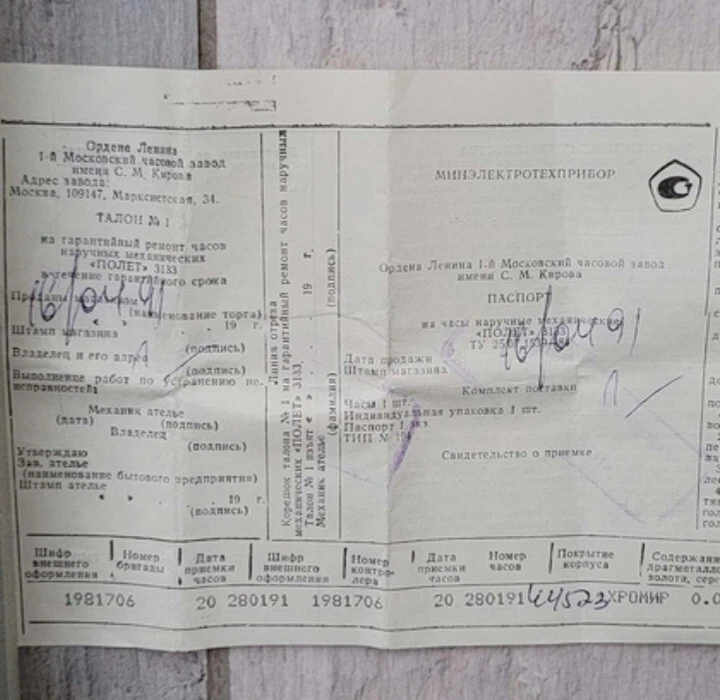 Ордена Ленина
1-й Московский часовой завод
имени С. М. Кирова
Адрес завода:
Москва, 109147, Марксистская, 34.
ТАЛОН № 1
на гарантийный ремонт часов
наручных механических
«ПОЛЕТ» 3133
в течение гарантийного срока
Проданы магазином
16/04 91
(наименование торга)
« » . . 19 г.
Штамп магазина
(подпись)
Владелец и его адрес
(подпись)
Выполнение работ по устранению не-
исправностей:
Механик ателье
(дата) (подпись)
Владелец
(подпись)
Утверждаю
Зав. ателье
(наименование бытового предприятия)
Штамп ателье
« » . . 19 г.
(подпись)
Линия отреза
Корешок талона № 1 на гарантийный ремонт часов наручных
механических «ПОЛЕТ» 3133
Талон № 1 изъят « » . . 19 г.
Механик ателье
(фамилия) (подпись)
МИНЭЛЕКТРОТЕХПРИБОР
Ордена Ленина 1-й Московский часовой завод
имени С. М. Кирова
ПАСПОРТ
на часы наручные механические
«ПОЛЕТ» 3133
ТУ 25
Дата продажи
16/04 91
Штамп магазина
Комплект поставки
Часы 1 шт.
Индивидуальная упаковка 1 шт.
Паспорт 1 экз.
ТИП №
Свидетельство о приемке
Шифр внешнего оформления
Номер бригады
Дата приемки часов
Шифр внешнего оформления
Номер контро-
лера
Дата приемки часов
Номер часов
Покрытие корпуса
Содержание
драгметаллов
золота, сер
1981706 20 280191 1981706 20 280191 44523 ХРОМИР 0.0